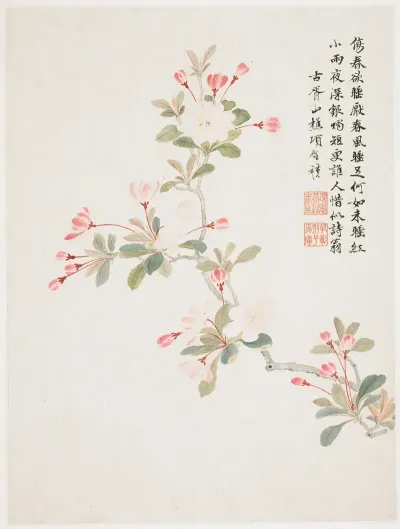 傷春欲睡厭春風睡足何如未睡紅
小雨夜深銀燭短更誰人惜似詩翁
古胥山樵項